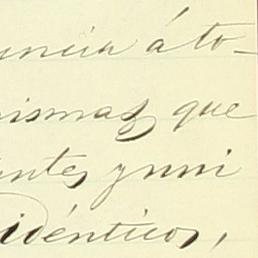 uncia á to-
nismas, que
ntes, y uni
idénticos,